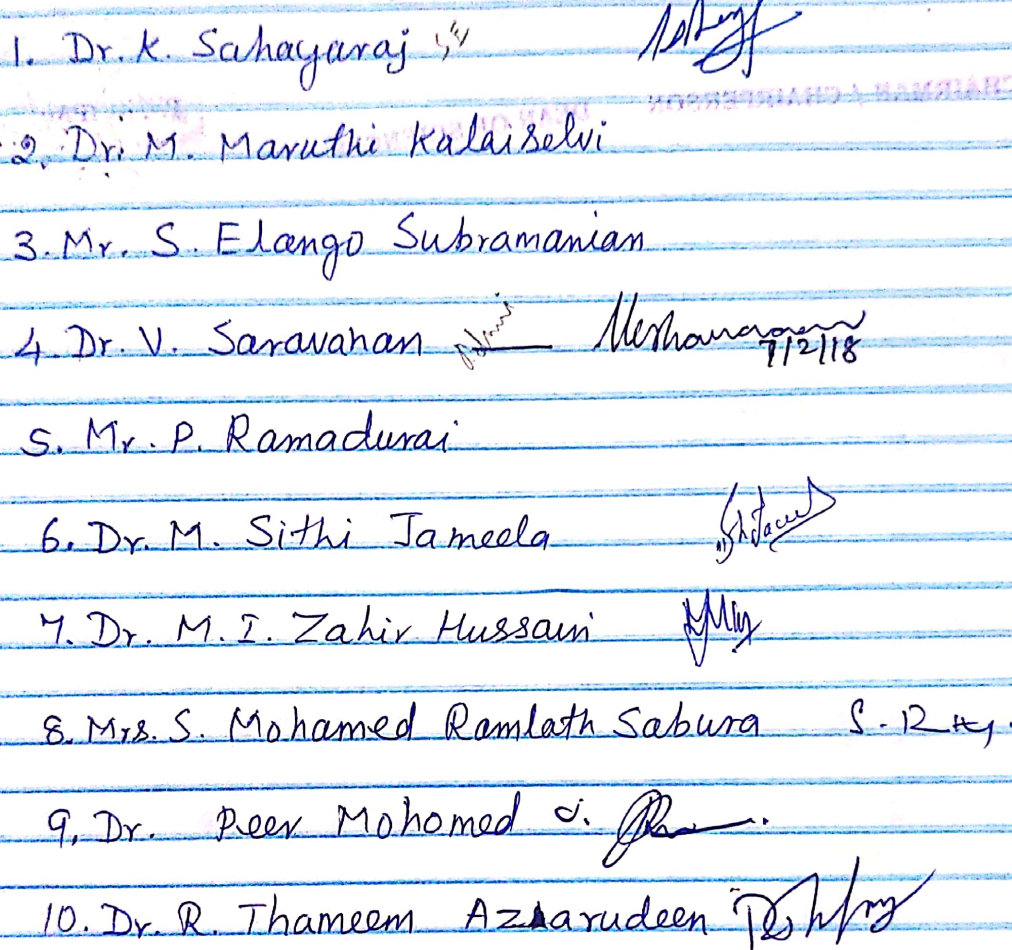 1. Dr. K. Sahayaraj
2. Dr. M. Maruthi Kalaiselvi
3. Mr. S. Elango Subramanian
4. Dr. V. Saravanan
7/2/18
5. Mr. P. Ramadurai
6. Dr. M. Sithi Jameela
7. Dr. M. I. Zahir Hussain
8. Mrs. S. Mohamed Ramlath Sabura
9. Dr. Peer Mohomed
10. Dr. R. Thameem Azharudeen